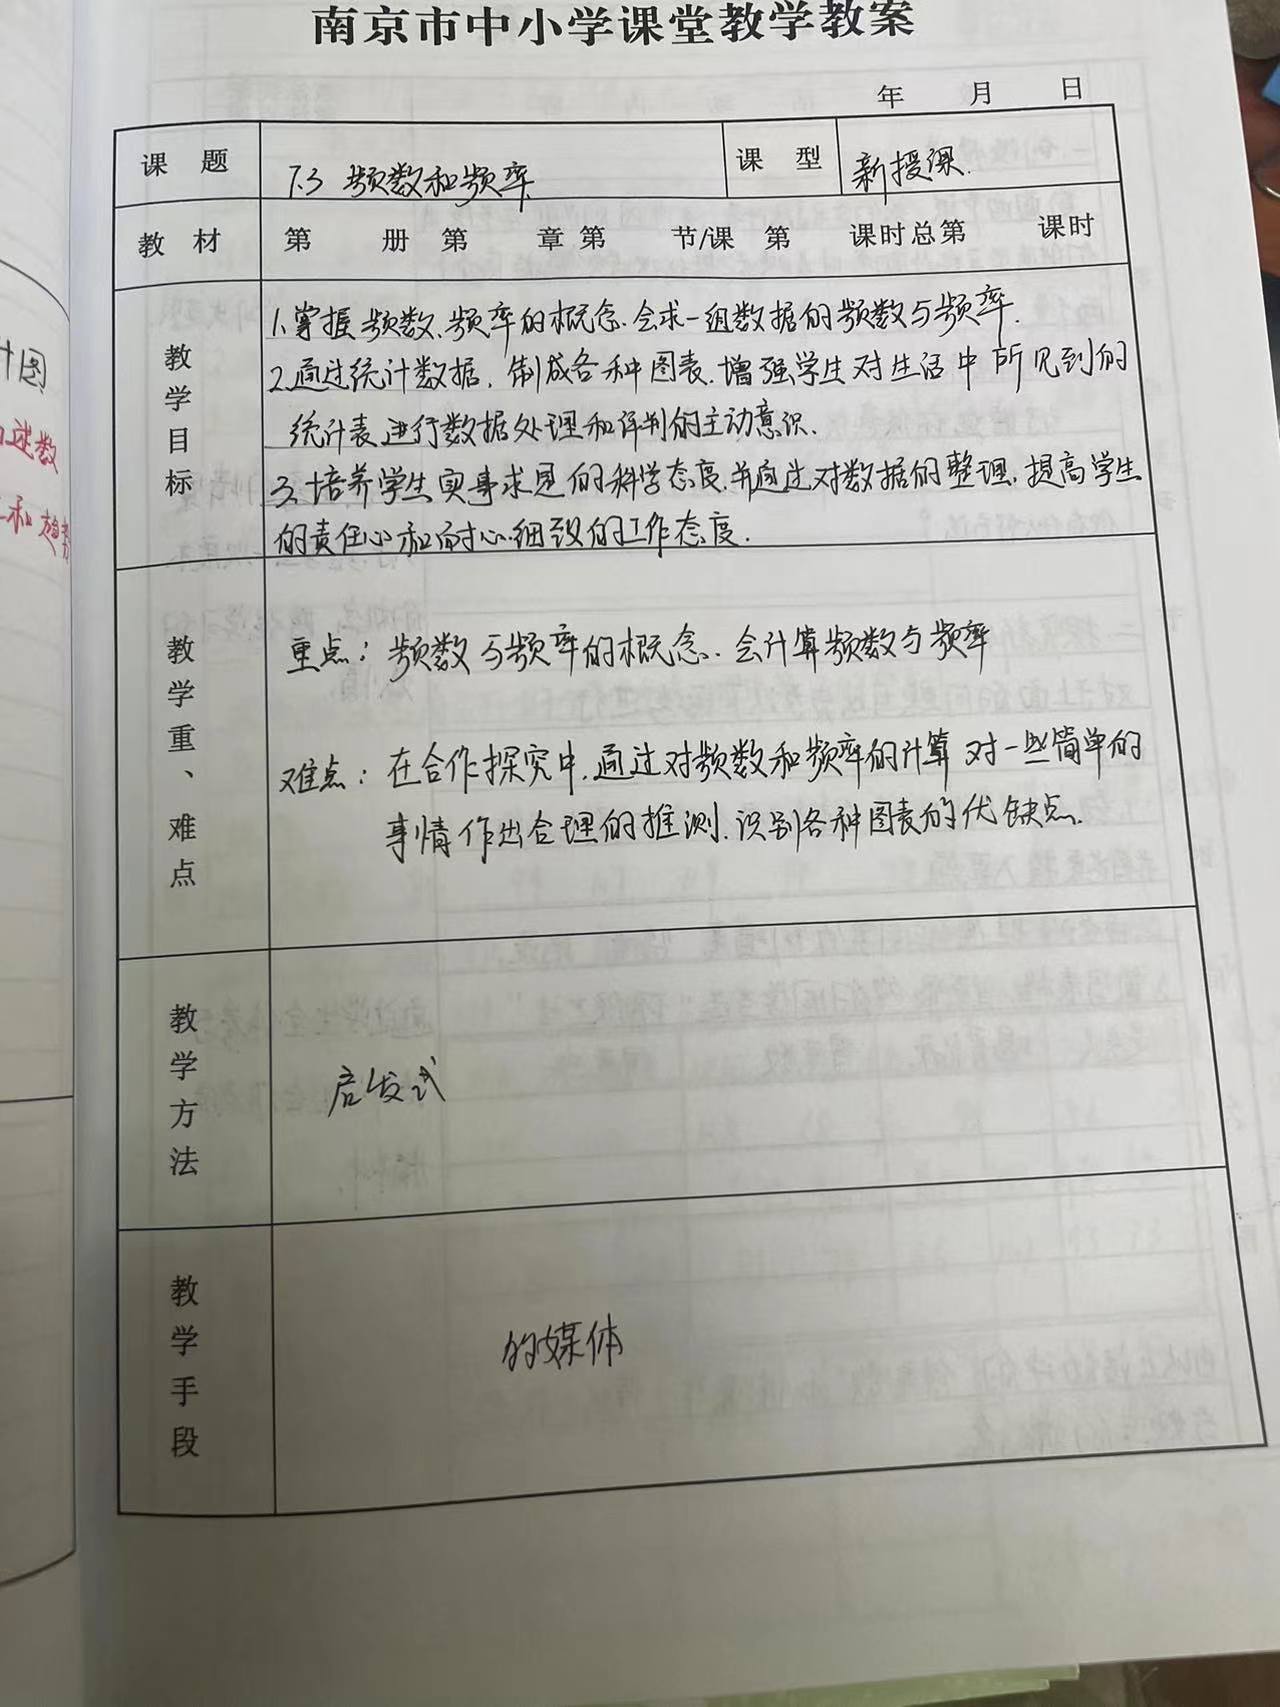 南京市中小学课堂教学教案
年 月 日
课 题 7.3 频数和频率 课 型 新授课.
教 材 第 册 第 章 第 节/课 第 课时总第 课时
教学目标
1.掌握频数、频率的概念.会求一组数据的频数与频率.
2.通过统计数据,制成各种图表.增强学生对生活中所见到的
统计表进行数据处理和评判的主动意识.
3.培养学生实事求是的科学态度.并通过对数据的整理,提高学生
的责任心和耐心细致的工作态度.
教学重、难点
重点:频数与频率的概念.会计算频数与频率
难点:在合作探究中,通过对频数和频率的计算 对一些简单的
事情作出合理的推测.识别各种图表的优缺点.
教学方法
启发式
教学手段
的媒体
计图
述数
和趋势